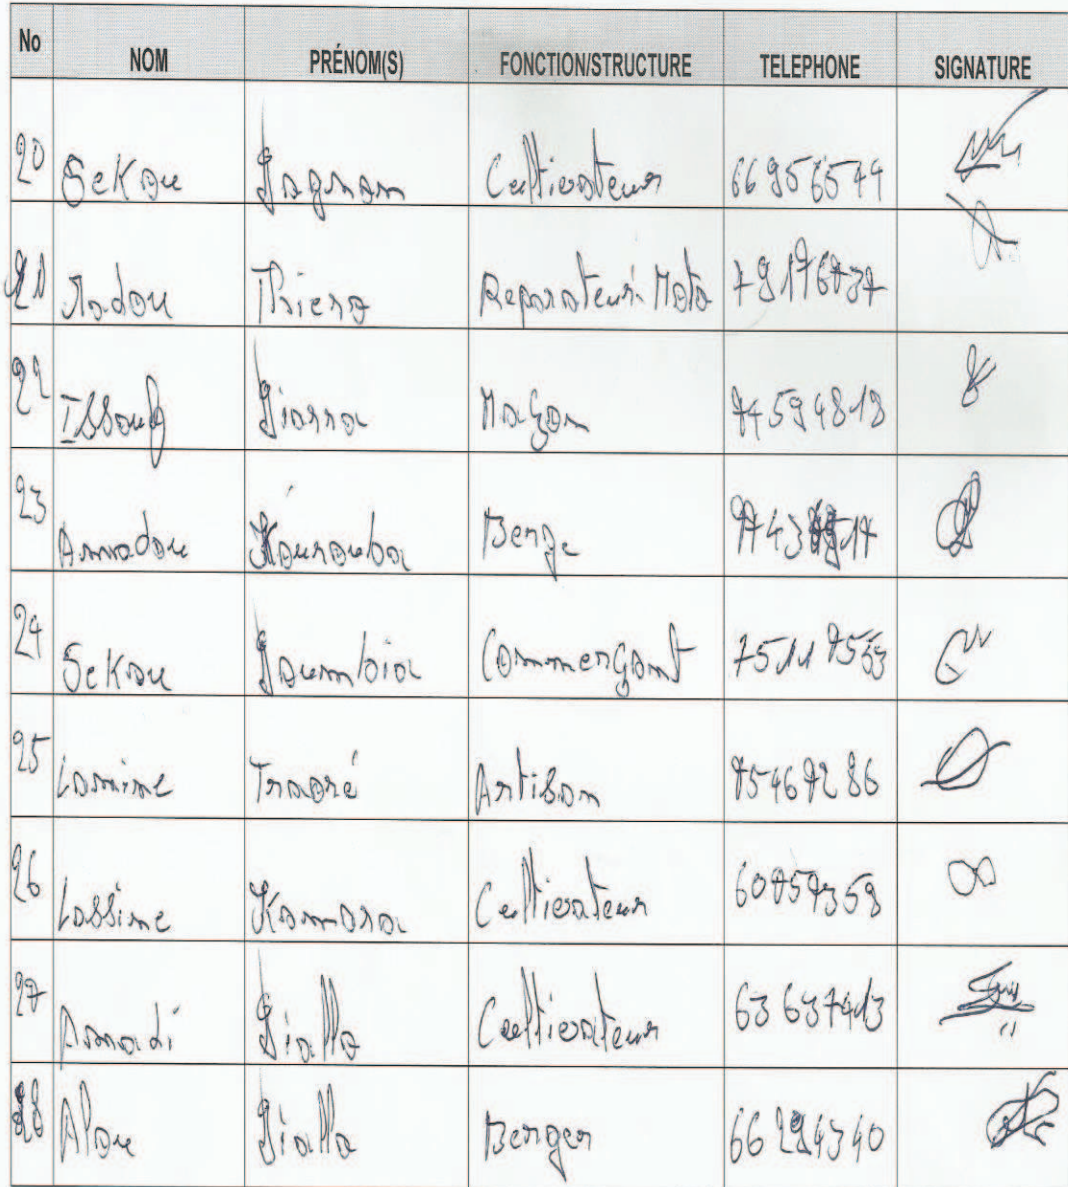 No NOM PRÉNOM(S) FONCTION/STRUCTURE TELEPHONE SIGNATURE
20 Sekou Cultivateur 66956544
21 Madou Thiero Reparateur Moto 79176737
22 Issouf Diarra Maçon 74594818
23 Amadou Kourouba Berge
24 Sekou Doumbia Commerçant 75117553
25 Lamine Traoré Artisan 75467286
26 Lassine Kamara Cultivateur 60757358
27 Amadi Diallo Cultivateur 63637413
28 Alou Diallo Berger 66294340